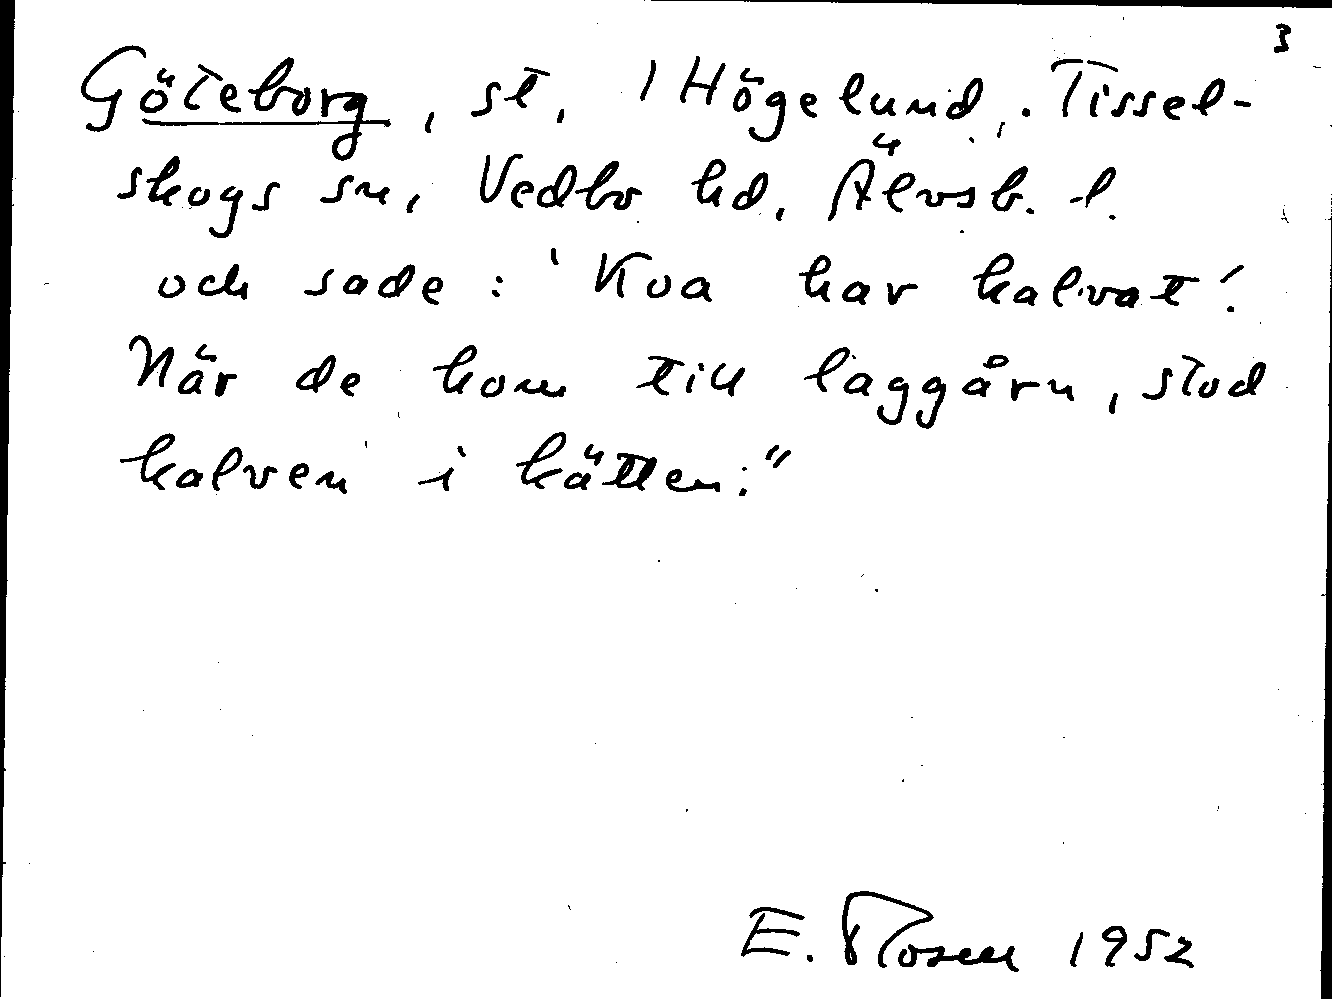 3
Göteborg, st, 1 Högelund, Tissel-
skogs sn, Vedbo hd, Älvsb. l.
och sade: 'Kva har kalvat'.
När de kom till laggårn, stod
kalven i kätten."
E. Rosen 1952